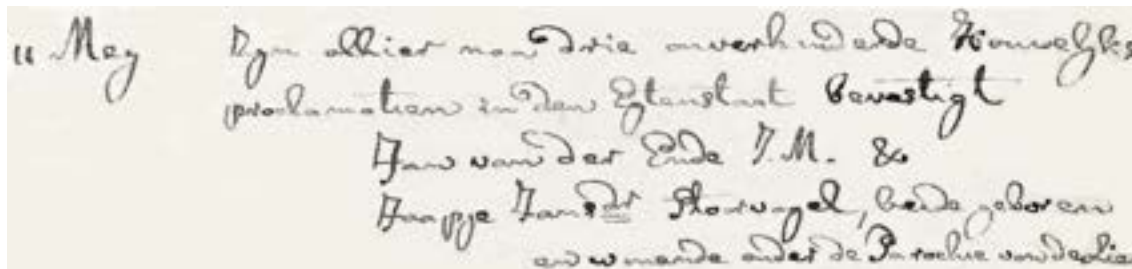 11 Mey Zyn alhier naa drie onverhinderde Houwelyks
proclamatien in den Egtenstaat bevestigt
Jan van der Ende J.M. &
Jaapje Jansdr Stoorvogel, beide geboren
en wonende onder de Parochie van de Lier